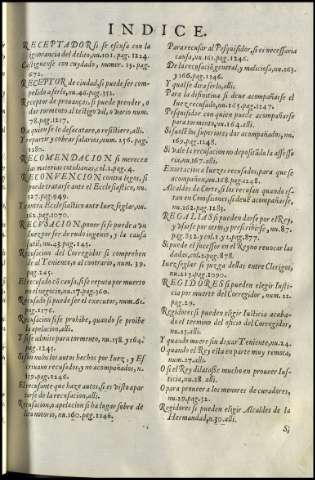 INDICE.
RECEPTADOR si se escusa con la
ignorancia del delito, nu.101. pag.1224.
Castiguense con cuydado, numer. 13. pag.
672.
RECEPTOR de ciudad, si puede ser com-
pelido a serlo, nu.46. pag.111.
Receptor de prouanças, si puede prender, o
dar tormento al testigo vil, o vario num.
78. pag.1217.
O a quien se le desacatare, o resistiere, alli.
Y repartir y cobrar salarios, num.156. pag.
1287.
RECOMENDACION si merece
RECONVENCION contra legos, si
puede tratarse ante el Ecclesiastico, nu.
127. pag.949.
Y contra Ecclesiastico ante Iuez seglar, nu.
162. pag.1070.
RECVSACION, poner si se puede a vn
Iuez por ser de ingenio, y la causa
sutil, nu.23. pag.145.
Recusacion del Corregidor si comprehen-
de al Teniente, o al contrario, num. 39.
pag.165.
El recusado cõ causa, si se reputa por muerto
en el negocio, nu.57. pag.126.
Recusado si puede ser el executor, num.61.
pag.1276.
Recusacion si se prohibe, quando se prohibe
la apelacion, alli.
Y si se admite para tormento, nu.158. y 164.
pag.1245.
Si son nulos los autos hechos por Iuez, y Es-
criuano recusados, y no acompañados, n.
159. pag.1246.
El recusante que haze autos, si es visto apar-
tarse de la recusacion, alli.
Recusacion, o apelacion si ha lugar sobre de
nu.160. pag.1246.
Para recusar al Pesquisidor, si es necessaria
causa, nu.161. pag.1246.
De la recusacion general, y maliciosa, nu.163.
y 166. pag.1246.
Y qual se dira serlo, alli.
Para la difinitiua si deue acompañarse el
Iuez recusado, nu.163. pag.1247.
Pesquisidor con quien puede acompañarse
para tormento, nu.164. alli.
Si suelen los superiores dar acompañados, nu.
167. pag.1248.
Si vale la recusacion no depositada la assesso-
ria, nu.167. alli.
Executores si siendo recusados, para que se
acompañen, nu.168. pag.1248.
Alcaldes de Corte, si los recusan quando es-
tan en Comissiones, si deuẽ acompañarse,
nu.168. pag.1248.
REGALIAS si pueden darse por el Rey,
y vsarse por otro, y prescribirse, nu.87.
pag.312. y col.1. y 2. pag.877.
Si puede el sucessor en el Reyno reuocar las
dadas, col.2. pag.878.
Iuez seglar si juzga dellas entre Clerigos,
nu.213. pag.1090.
REGIDORES si pueden elegir Iusti-
cia por muerte del Corregidor, num. 22.
pag.29.
Regidores si pueden elegir Iusticia acaba-
do el termino del oficio del Corregidor,
nu.23. alli.
Y quando muere sin dexar Teniente, nu.24.
O quando el Rey esta en parte muy remota,
num.27. alli.
O si el Rey dilatasse mucho en proueer Iusti-
cia, nu.28. alli.
O para proueer a los menores de curadores,
nu.29. pag.32.
Regidores si pueden eligir Alcaldes de la
Hermandad, n.30. alli.
Si